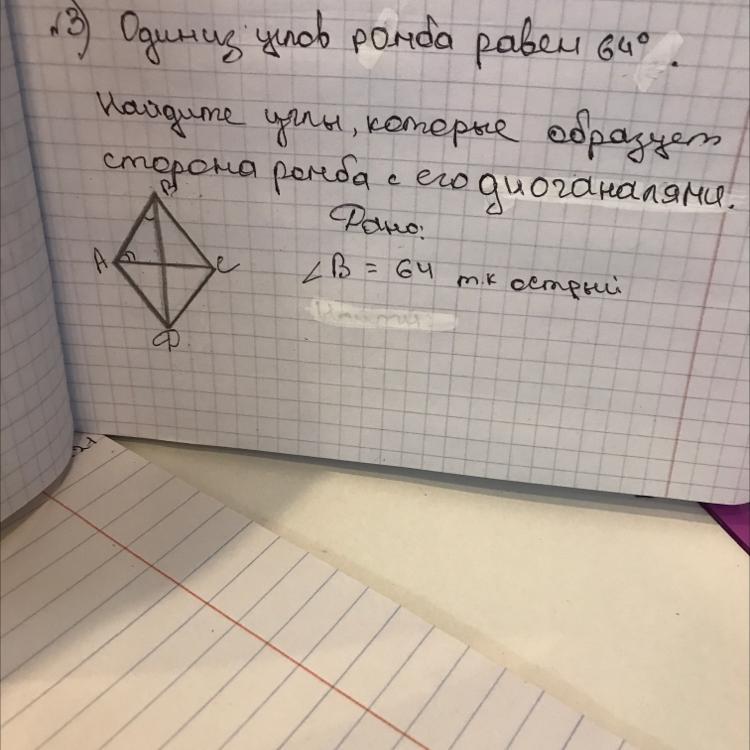 №3) Один из углов ромба равен 64°.
Найдите углы, которые образует
сторона ромба с его диоганалями.
B
Дано:
A
C
∠B = 64 т.к острый
Найти
D